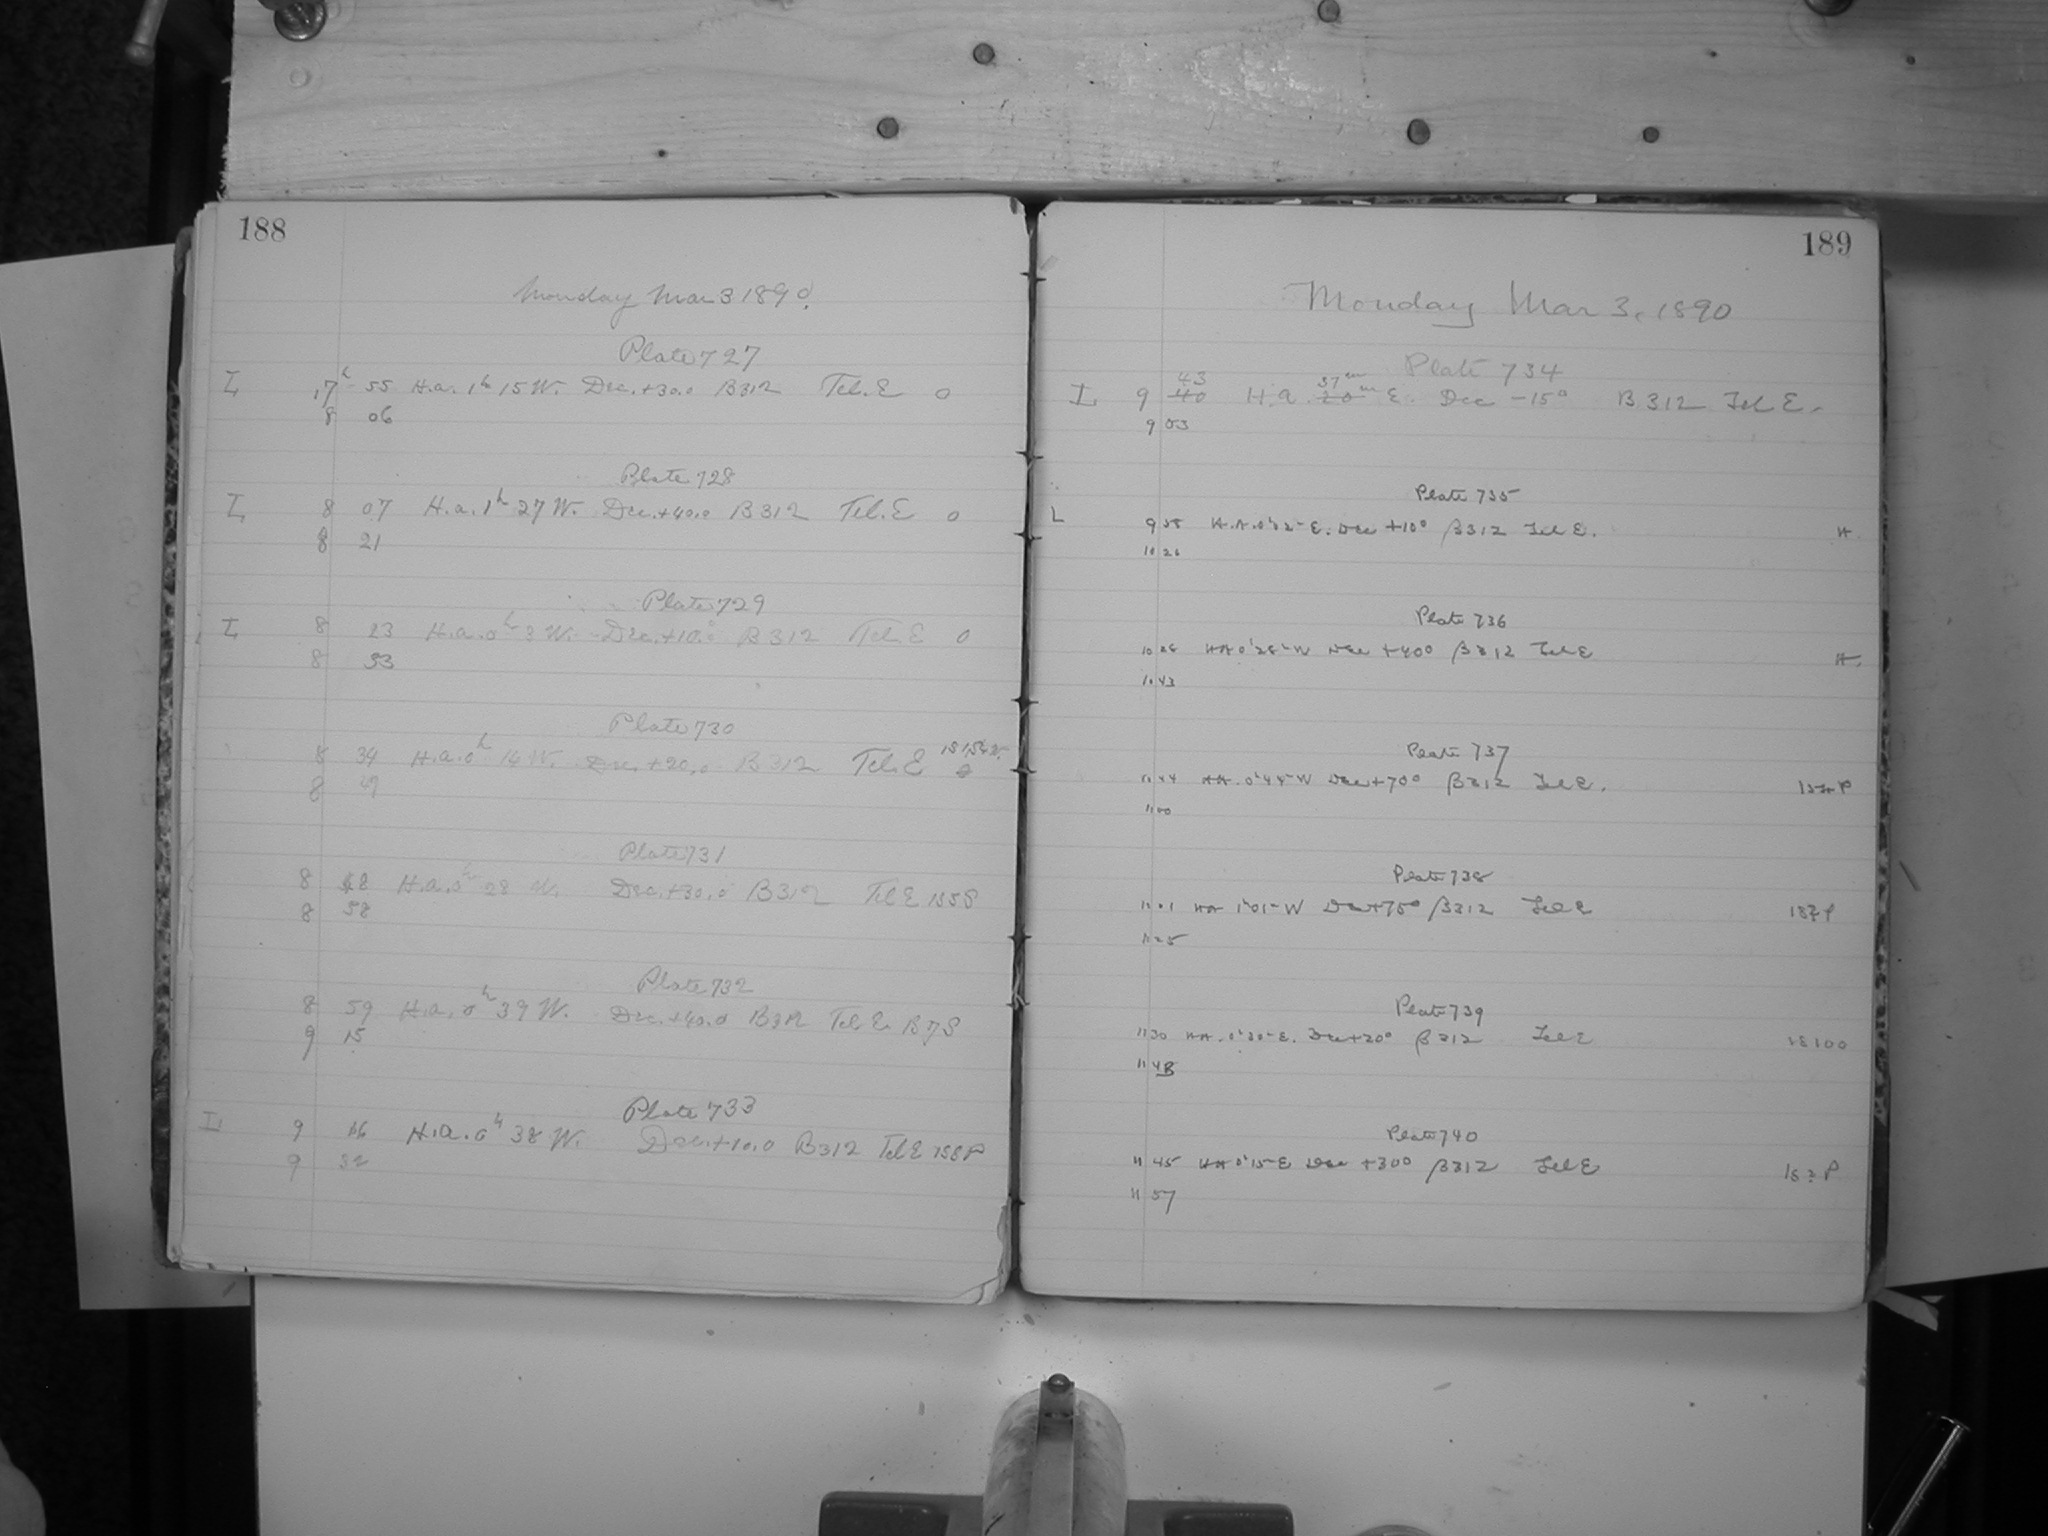 188
Monday Mar 3 1890.
Plate 727
I 7h 55 H.a. 1h 15 W. Dec. +30.0 B312 Tel. E 0
8 06
Plate 728
I 8 07 H.a. 1h 27 W. Dec. +40.0 B312 Tel. E 0
8 21
Plate 729
I 8 23 H.a. 0h 3 W. Dec. +10.0 B312 Tel. E 0
8 33
Plate 730
8 34 H.a. 0h 14 W. Dec. +20.0 B312 Tel. E
8 47
Plate 731
8 48 H.a. 0h 28 W. Dec. +30.0 B312 Tel E
8 58
Plate 732
8 59 H.a. 0h 39 W. Dec. +40.0 B312 Tel E
9 15
Plate 733
I 9 16 H.a. 0h 38 W. Dec. +10.0 B312 Tel E
9 32
189
Monday Mar 3, 1890
Plate 734
43 37m
I 9 40 H a 20m E. Dec -15° B312 Tel E.
9 53
Plate 735
L 9 58 H.A. E. Dec +10° B312 Tel E. H
10 26
Plate 736
10 28 HA 0h 28m W Dec +40° B312 Tel E H.
10 43
Plate 737
HA. 0h 44m W Dec +70° B312 Tel E.
11 00
Plate 738
11 01 HA 1h 01m W Dec +75° B312 Tel E
11 25
Plate 739
11 30 HA. 0h 30m E. Dec +20° B312 Tel E
Plate 740
11 45 HA 0h 15m E Dec +30° B312 Tel E
11 57